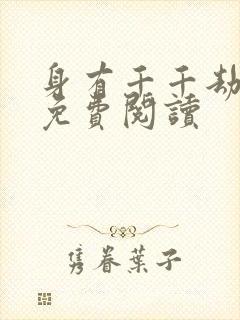 身有千千劫
免費閱讀
隽眷葉子